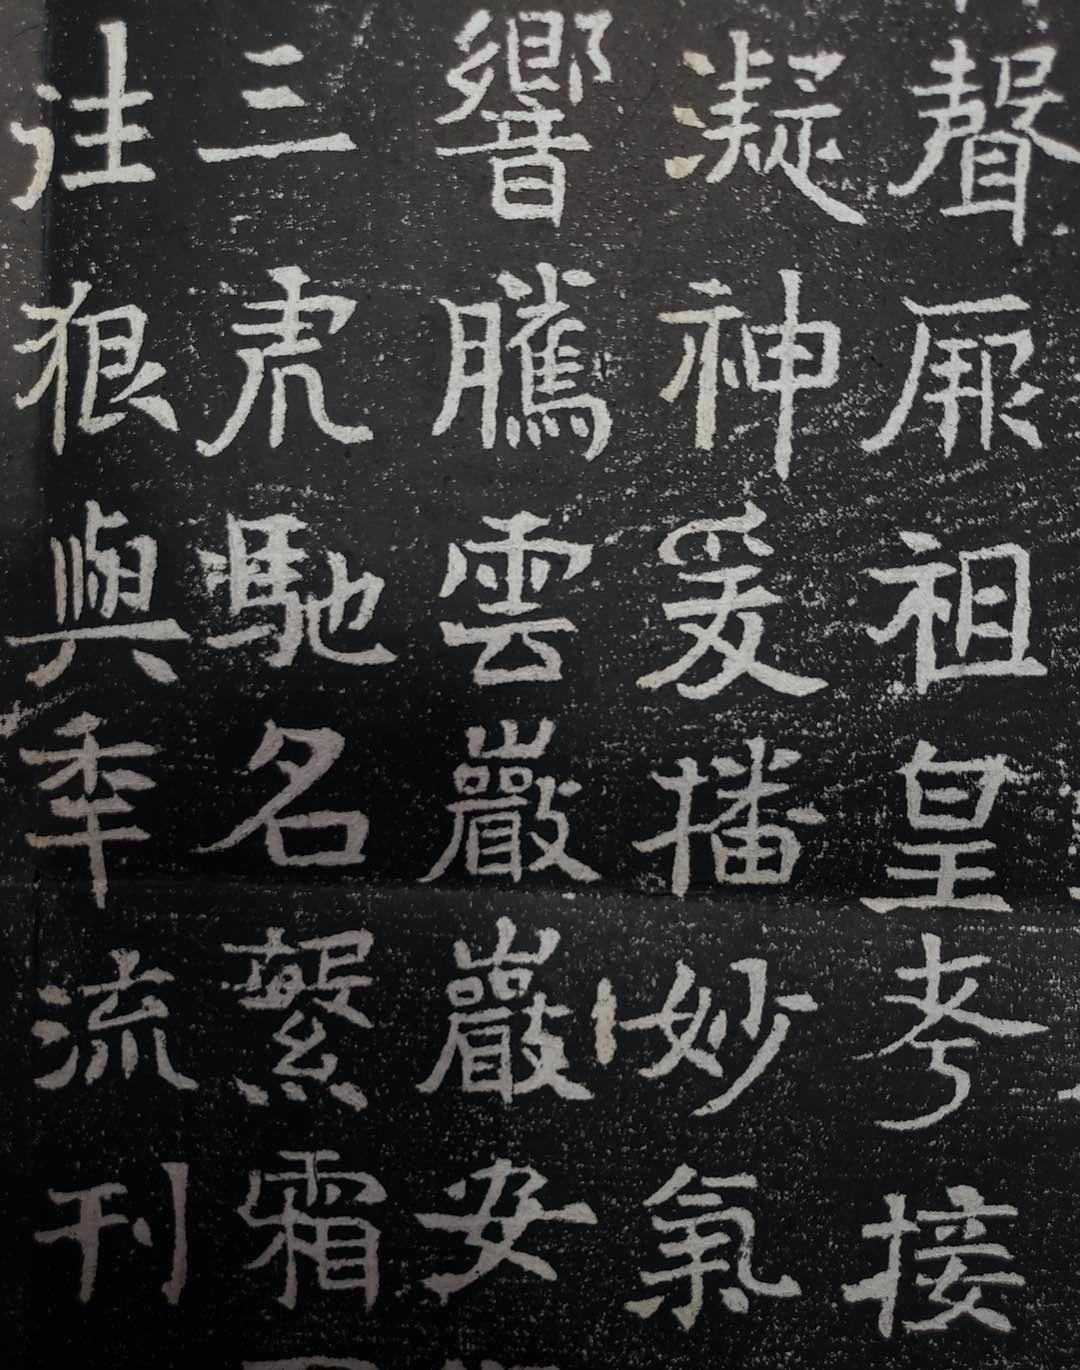 聲厥祖皇考接
凝神爰播妙氣
響騰雲巖巖安
三虎馳名繁霜
注狠與秊流刊